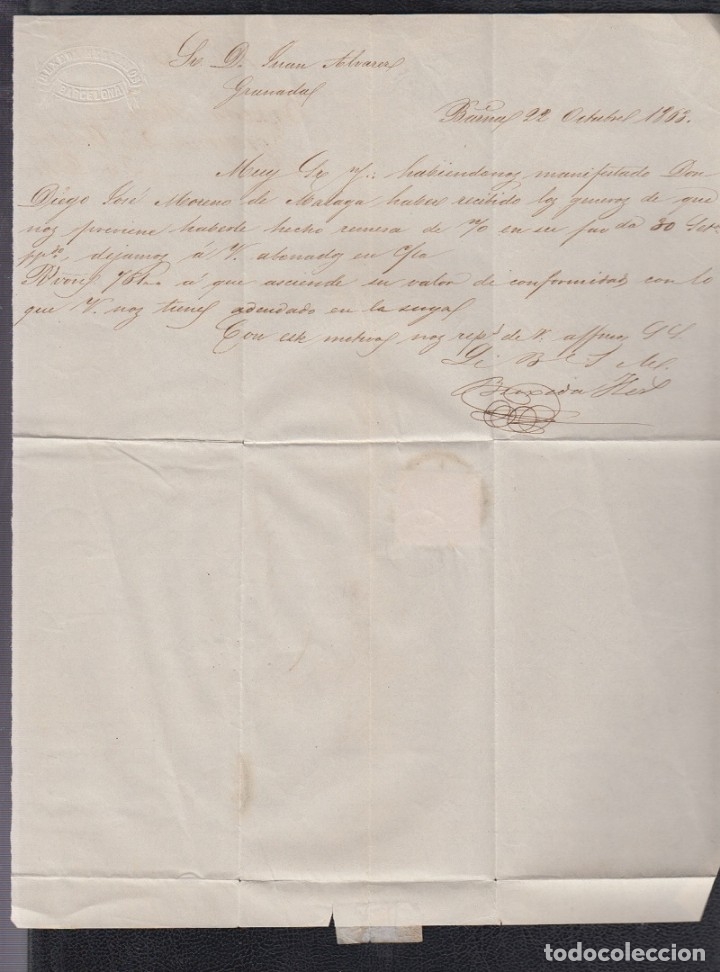 BARCELONA
Sr D. Juan Alvarez
Granada
Barna 22 Octubre 1863.
Muy Sr n/: habiendonos manifestado Don
Diego José Moreno de Malaga haber recibido los generos de que
nos previene haberle hecho remesa de n/o en su fav da 30 Setre
pp.do, dejamos á V. abonado en c/ta
Rvon á que asciende su valor de conformidad con lo
que V. nos tiene adeudado en la suya
Con este motivo nos rep.s de V. affmos S S.
Q B S M.
Hers
todocoleccion
todocoleccion.net